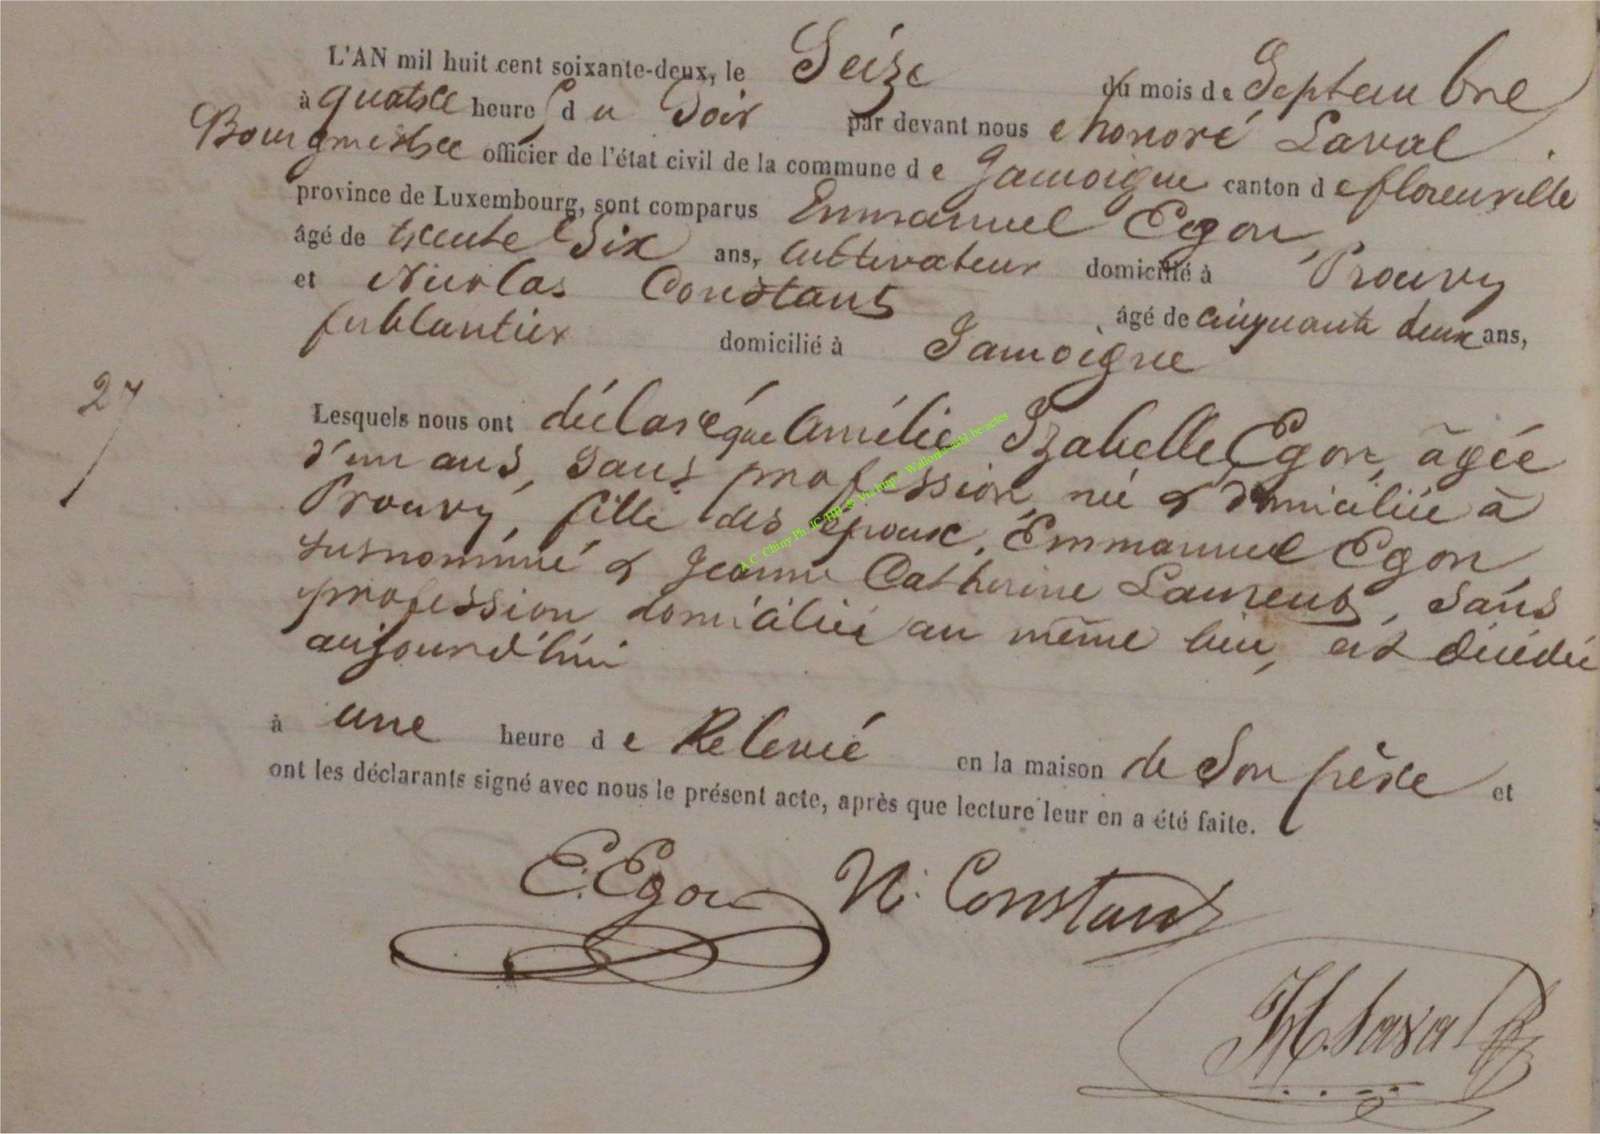 L'AN mil huit cent soixante-deux, le Seize du mois de Septembre
à quatre heures du Soir par devant nous honoré Laval
Bourgmestre officier de l'état civil de la commune de Jamoigne canton de florenville
province de Luxembourg, sont comparus Emmanuel Egon,
âgé de trente Six ans, Cultivateur domicilié à Prouvy
et Nicolas Constant âgé de cinquante deux ans,
ferblantier domicilié à Jamoigne
27
Lesquels nous ont déclaré que Amélie Izabelle Egon, âgée
d'un ans, sans profession, né & domiciliée à
Prouvy, fille des époux, Emmanuel Egon
susnommé & Jeanne Catherine Laurent, sans
profession domiciliée au même lieu, est décédée
aujourd'hui
à une heure de Relevée en la maison de Son père et
ont les déclarants signé avec nous le présent acte, après que lecture leur en a été faite.
E. Egon N. Constant
H. Laval